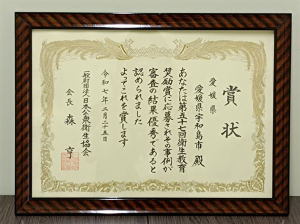 賞状
愛媛県
愛媛県宇和島市 殿
あなたは第五十七回衛生教育
奨励賞に応募されその事例が
審査の結果優秀であると
認められました
よってこれを賞します
令和七年二月二十五日
一般財団法人日本公衆衛生協会
会長 森 亨